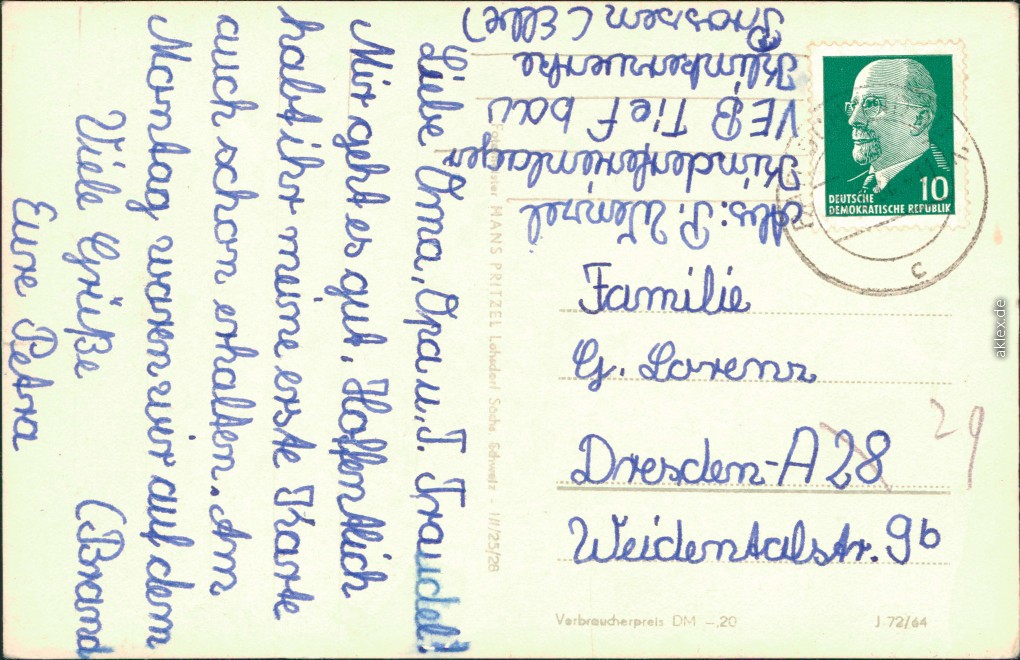 Liebe Oma, Opa u. T. Traudel!
Mir geht es gut. Hoffentlich
habt ihr meine erste Karte
auch schon erhalten. Am
Montag waren wir auf dem
Viele Grüße (Brand
Eure Petra
Abs: P. Wenzel
Kinderferienlager
VEB Tiefbau
Klinkerwerke
Prossen (Elbe)
HANS PRITZEL Lohsdorf Sächs Schweiz - 1/1/25/28
DEUTSCHE
DEMOKRATISCHE REPUBLIK
10
c
Familie
G. Lorenz
Dresden-A 28
29
Weidentalstr. 9b
Verbraucherpreis DM -,20
J-72/64
aklex.de